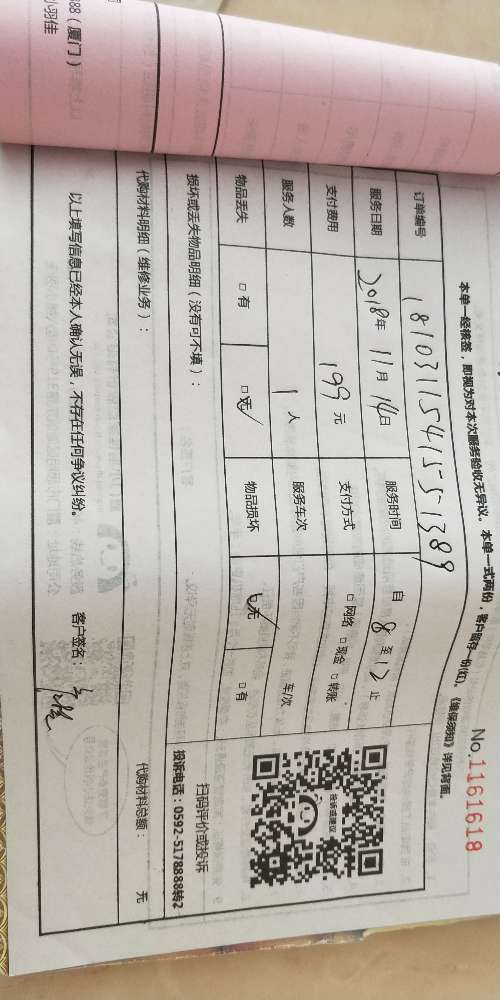 No.1161618
本单一经核签，即视为对本次服务验收无异议。本单一式两份，客户留存一份(红)。《维保须知》详见背面。
订单编号 181031154155 1389
服务日期 2018年 11月 14日 服务时间 自 8 至 12 止
支付费用 199 元 支付方式 □网络 □现金 □转账
服务人数 1 人 服务车次 车/次
物品丢失 □有 □无 物品损坏 □无 □有
投诉或建议
扫码评价或投诉
投诉电话：0592-5178888转2
损坏或丢失物品明细（没有可不填）：
代购材料明细（维修业务）： 代购材料总额： 元
以上填写信息已经本人确认无误，不存在任何争议纠纷。 客户签名：
88（厦门）
羽佳